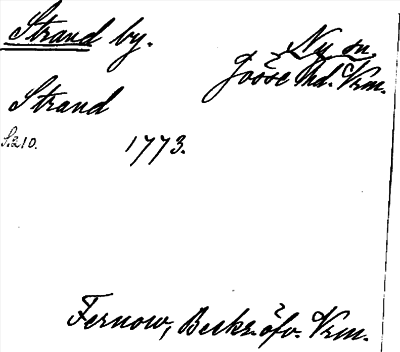 Strand by.
Ny sn
Jösse hd. Vrm.
Strand
S.210.
1773.
Fernow, Beskr. öfv. Vrm.